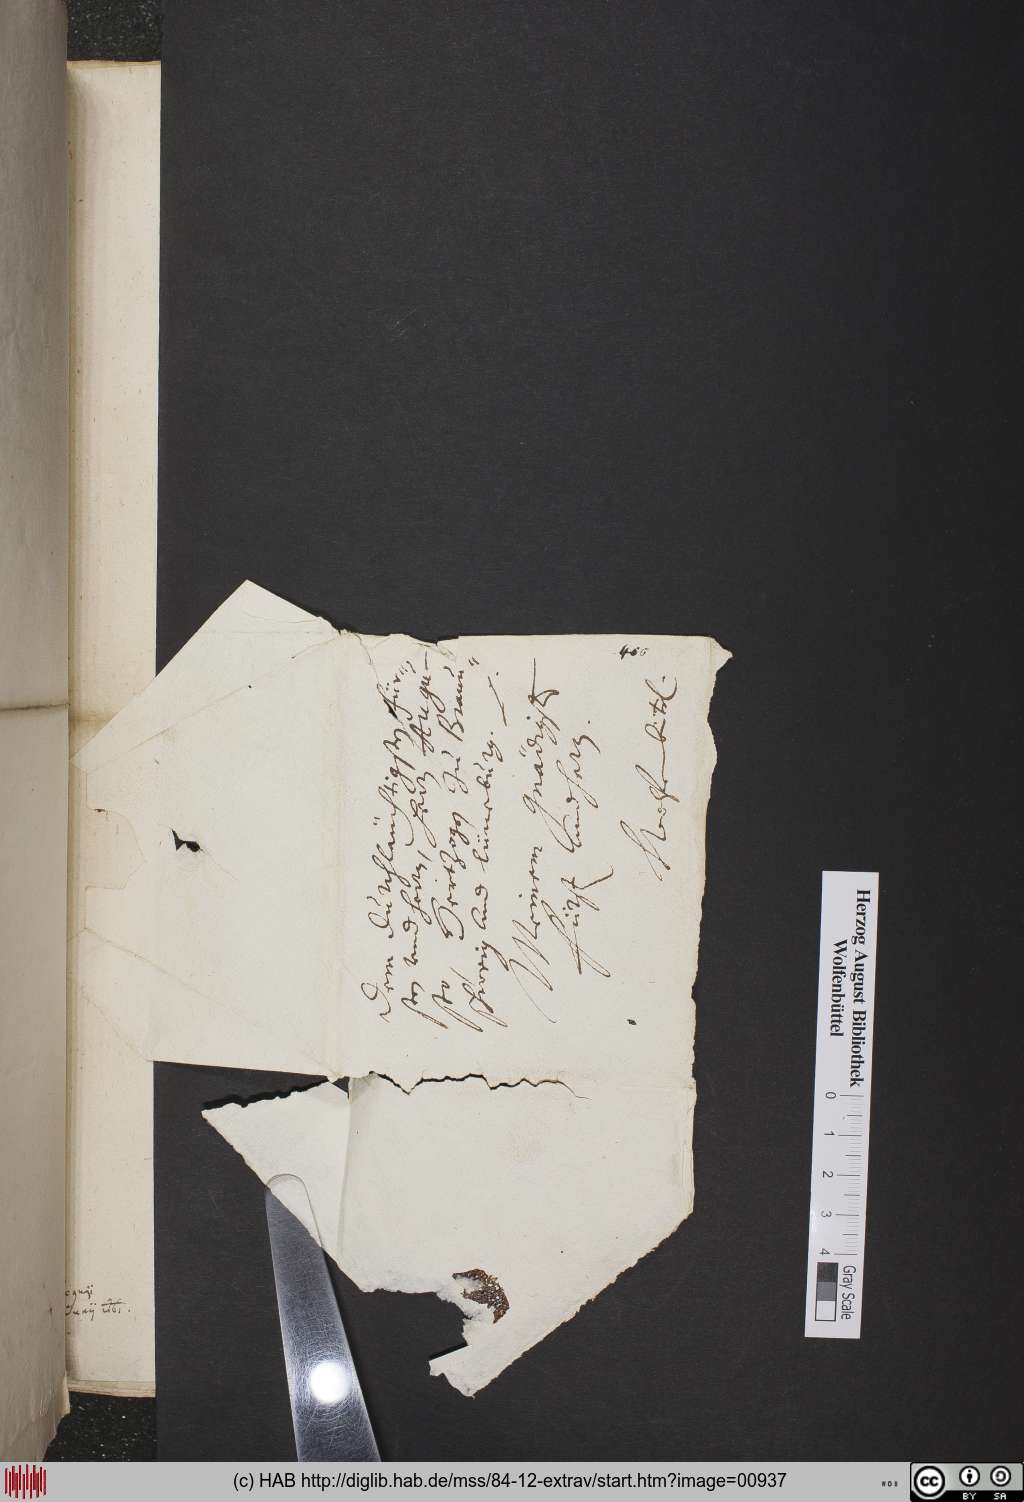 Dem Durchläuchtigsten Für„
sten und herrn, herrn Augu—
sto, Hertzogen Zu Braun„
schweig und Lüneburg.
Meinem Gnädigsten
Fürst und herrn.
Wolfenbüttel.
466
Herzog August Bibliothek
Wolfenbüttel
0 1 2 3 4
Gray Scale
(c) HAB http://diglib.hab.de/mss/84-12-extrav/start.htm?image=00937
cc BY SA